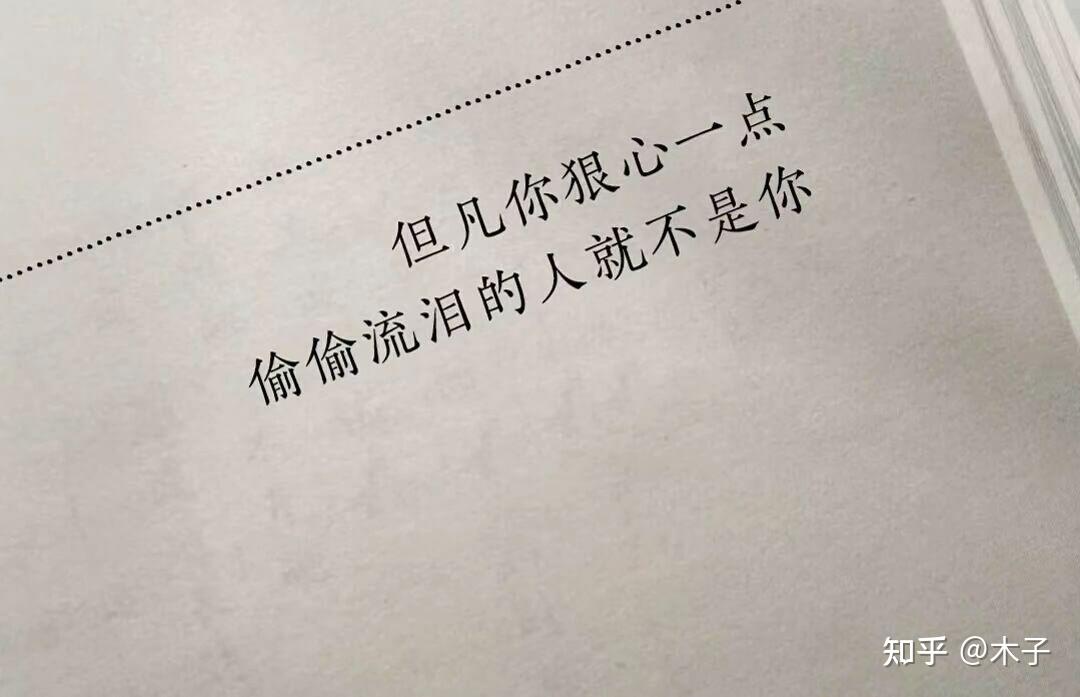 但凡你狠心一点
偷偷流泪的人就不是你
知乎 @木子